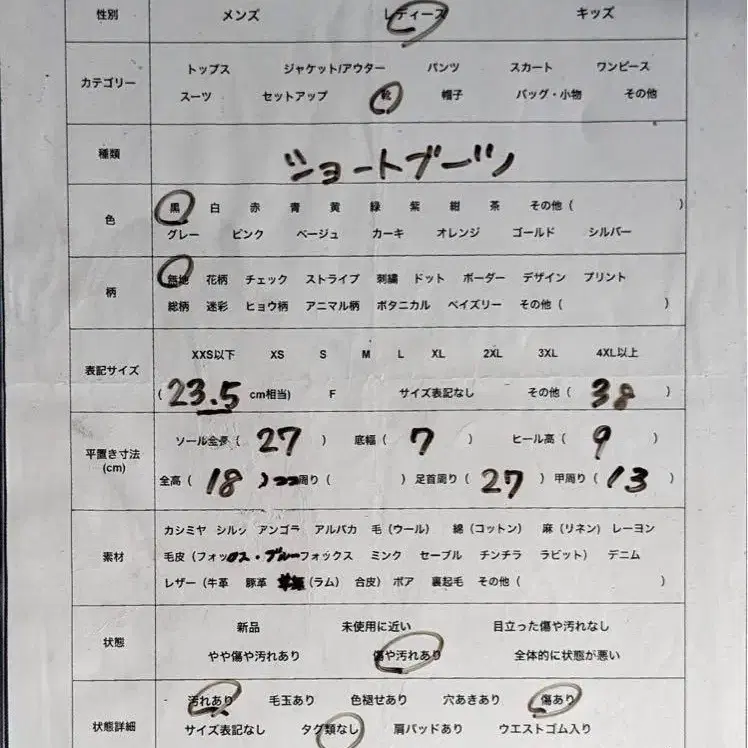 性別 メンズ レディース キッズ
カテゴリー トップス ジャケット/アウター パンツ スカート ワンピース
スーツ セットアップ 靴 帽子 バッグ・小物 その他
種類 ショートブーツ
色 黒 白 赤 青 黄 緑 紫 紺 茶 その他 ( )
グレー ピンク ベージュ カーキ オレンジ ゴールド シルバー
柄 無地 花柄 チェック ストライプ 刺繍 ドット ボーダー デザイン プリント
総柄 迷彩 ヒョウ柄 アニマル柄 ボタニカル ペイズリー その他 ( )
表記サイズ XXS以下 XS S M L XL 2XL 3XL 4XL以上
( 23.5 cm相当) F サイズ表記なし その他 ( 38 )
平置き寸法 (cm) ソール全長 ( 27 ) 底幅 ( 7 ) ヒール高 ( 9 )
全高 ( 18 ) 周り ( ) 足首周り ( 27 ) 甲周り ( 13 )
素材 カシミヤ シルク アンゴラ アルパカ 毛 (ウール) 綿 (コットン) 麻 (リネン) レーヨン
毛皮 (フォックス・ブルーフォックス ミンク セーブル チンチラ ラビット) デニム
レザー (牛革 豚革 (ラム) 合皮) ボア 裏起毛 その他 ( )
状態 新品 未使用に近い 目立った傷や汚れなし
やや傷や汚れあり 傷や汚れあり 全体的に状態が悪い
状態詳細 汚れあり 毛玉あり 色褪せあり 穴あきあり 傷あり
サイズ表記なし タグ類なし 肩パッドあり ウエストゴム入り